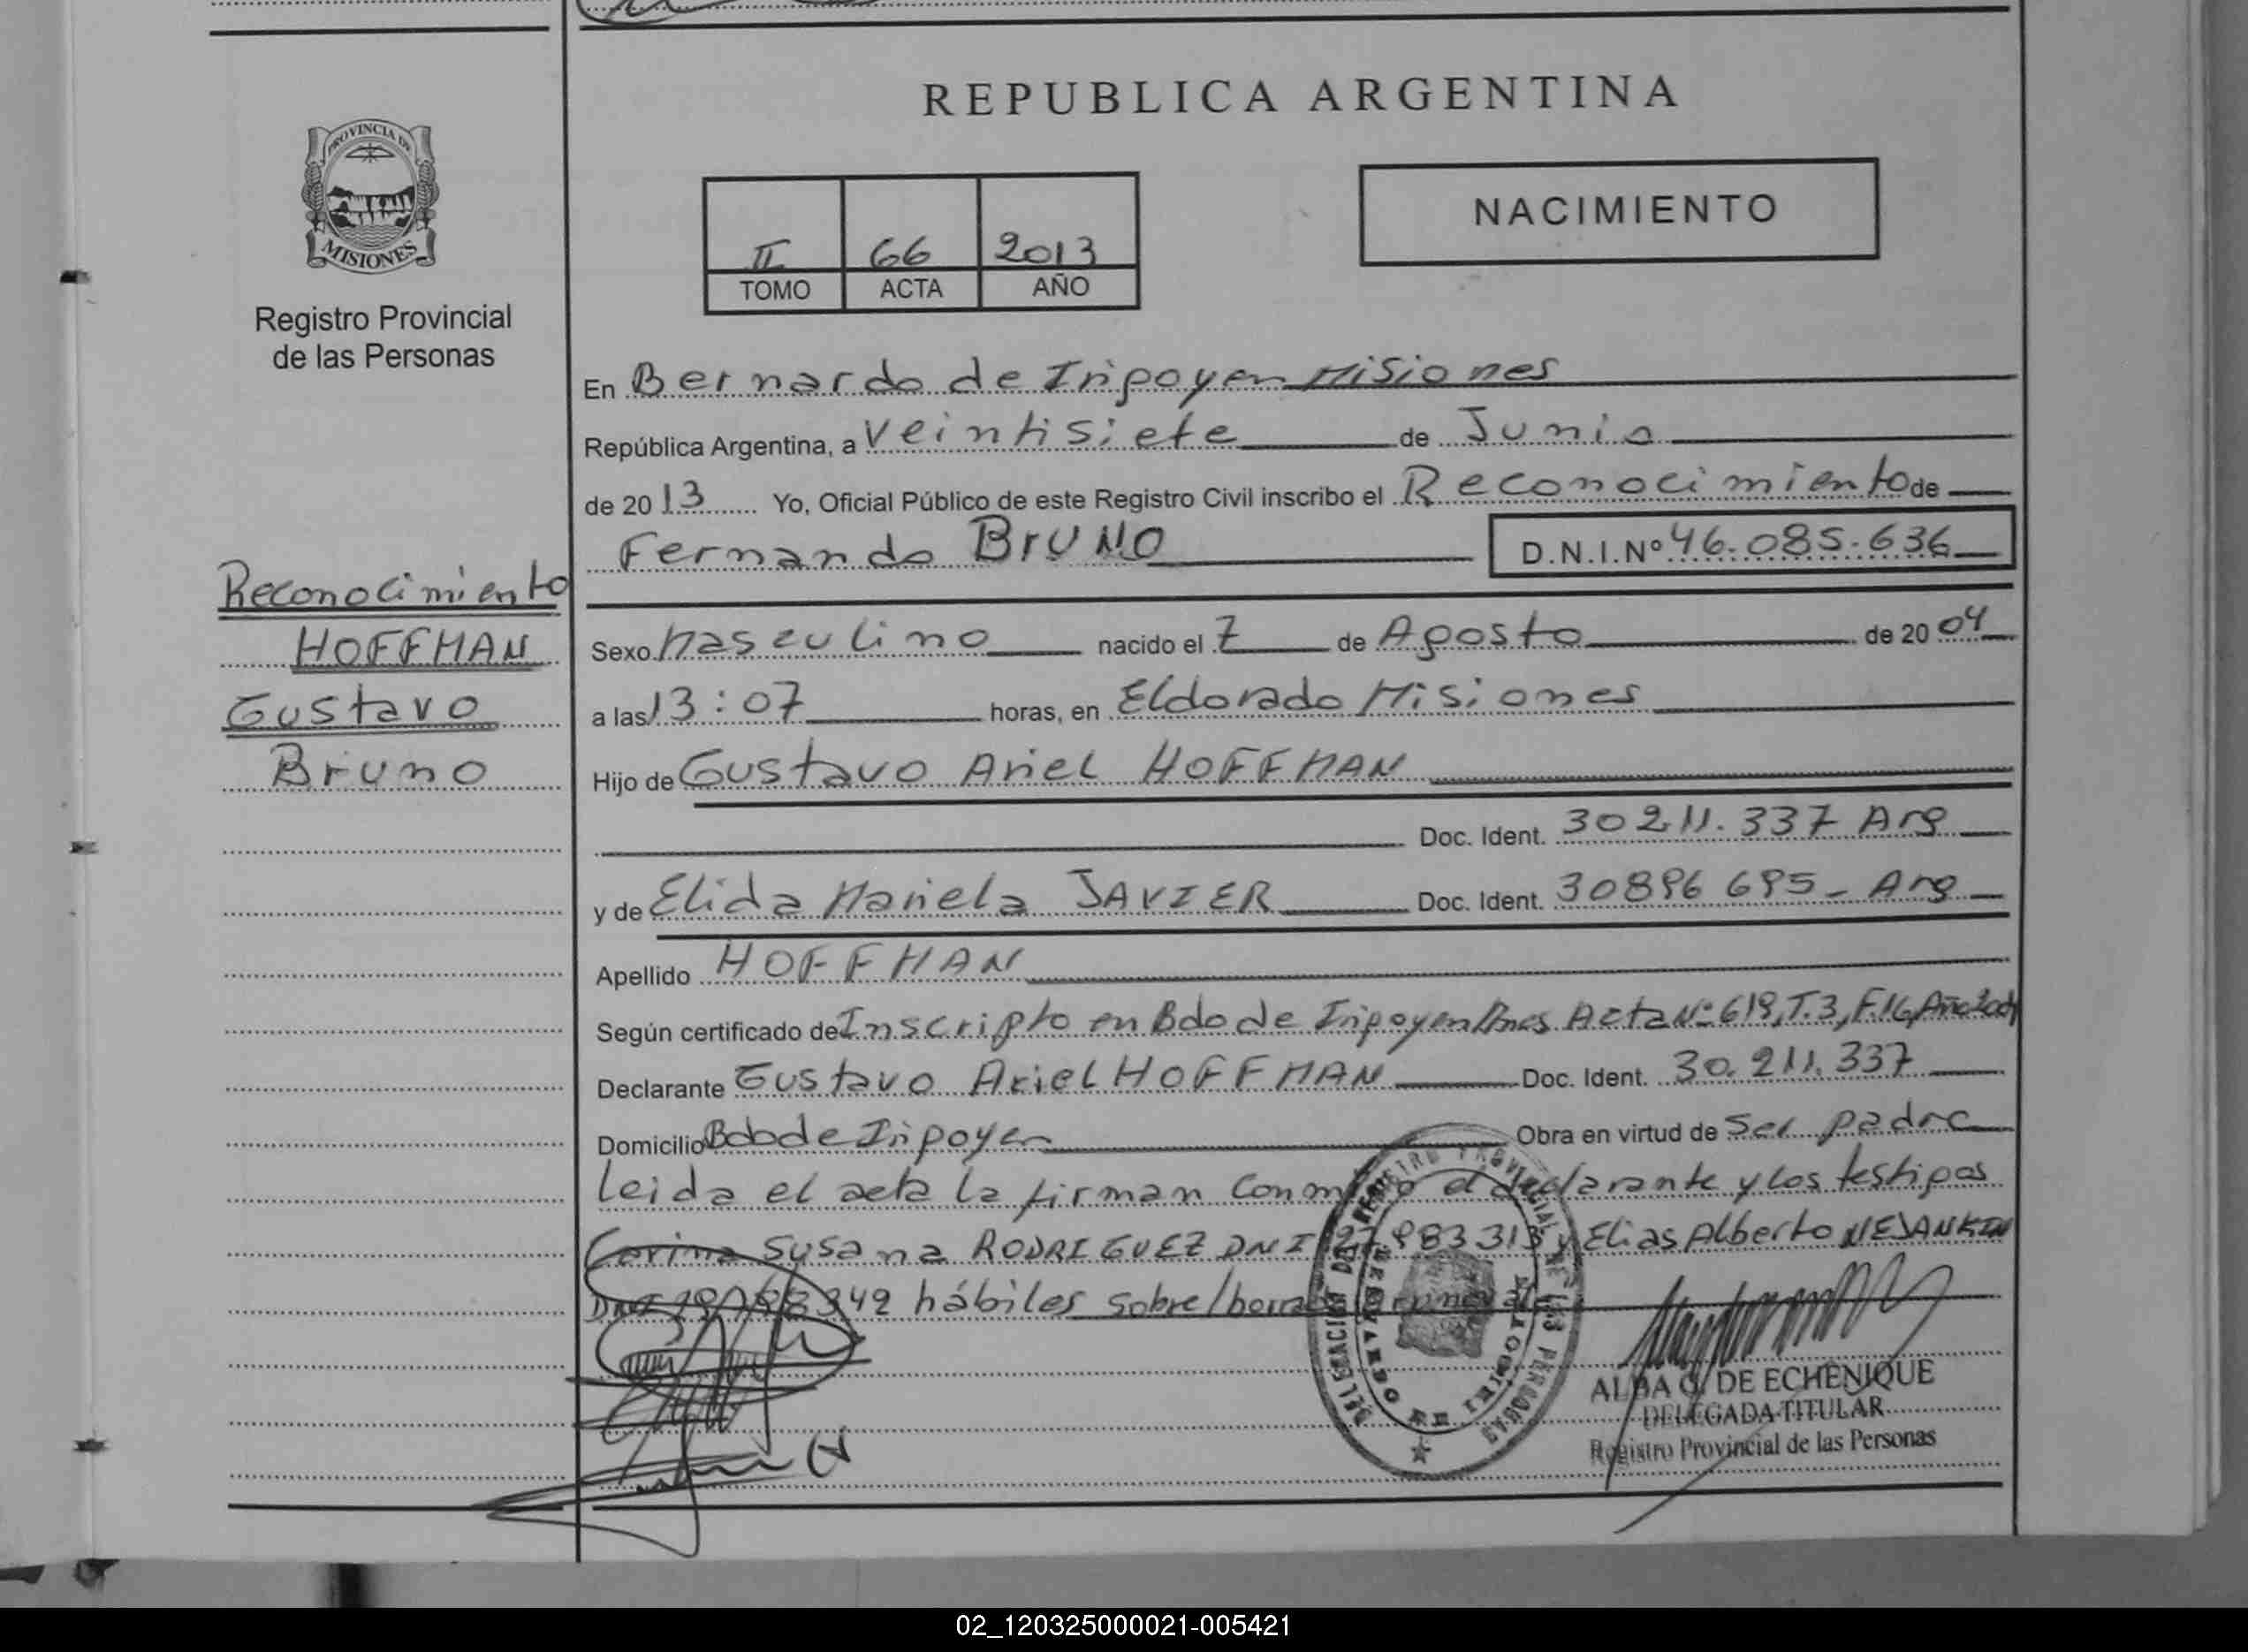 REPUBLICA ARGENTINA
PROVINCIA DE
MISIONES
Registro Provincial
de las Personas
NACIMIENTO
II 66 2013
TOMO ACTA AÑO
En Bernardo de Irigoyen Misiones
República Argentina, a veintisiete de Junio
de 2013 Yo, Oficial Público de este Registro Civil inscribo el Reconocimiento de
Fernando BRUNO D.N.I.Nº 46.085.636
Reconocimiento
HOFFMAN
Gustavo
Bruno
Sexo Masculino nacido el 7 de Agosto de 2004
a las 13:07 horas, en Eldorado Misiones
Hijo de Gustavo Ariel HOFFMAN
Doc. Ident. 30211.337 Arg
y de Elida Mariela JAVIER Doc. Ident. 30896 695 - Arg
Apellido HOFFMAN
Según certificado de Inscripto en Bdo de Irigoyen Mnes Acta Nº 619, T.3, F.16, Año
Declarante Gustavo Ariel HOFFMAN Doc. Ident. 30.211.337
Domicilio Bdo de Irigoyen Obra en virtud de ser padre
leida el acta la firman conmigo el declarante y los testigos
Susana RODRIGUEZ DNI y Elias Alberto
DNI hábiles sobre/
REGISTRO PROVINCIAL DE LAS PERSONAS
DELEGACION
BERNARDO DE IRIGOYEN
ALBA G. DE ECHENIQUE
DELEGADA TITULAR
Registro Provincial de las Personas
02_120325000021-005421